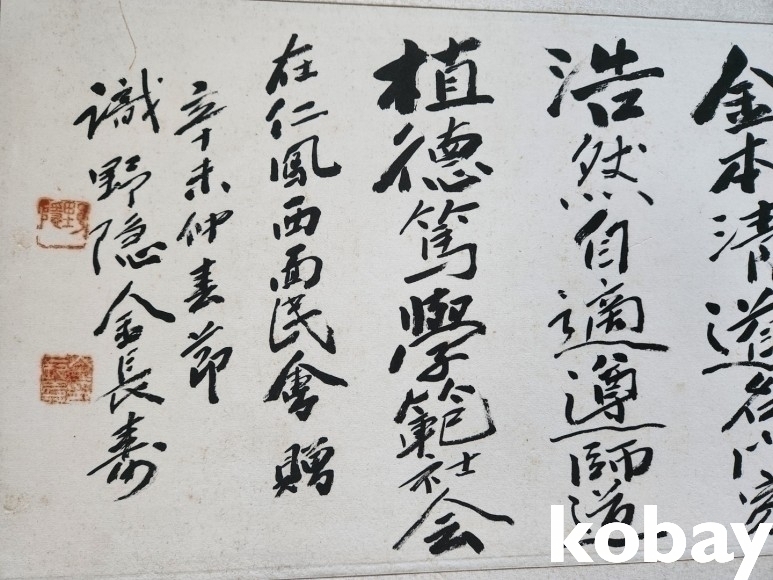 金本清道
浩然自適遵師道
植德篤學範社会
在仁風西面民會 贈
辛未仲春節
識野隐金長寿
野隱
kobay